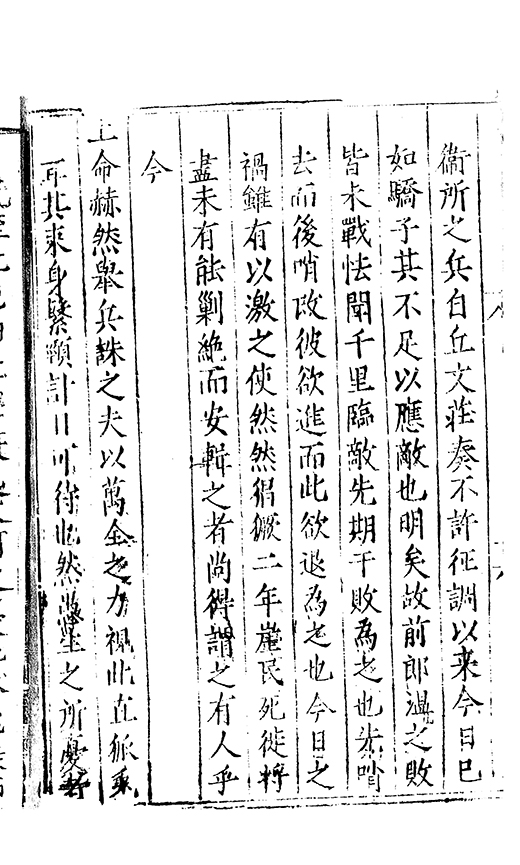 衛所之兵自丘文莊奏不許征調以來今日已
如驕子其不足以應敵也明矣故前郎溫之敗
皆未戰怯聞千里臨敵先期干敗為之也先哨
去而後哨改彼欲進而此欲退為之也今日之
禍雖有以激之使然然猖獗二年崖民死徙將
盡未有能剿絶而安輯之者尚得謂之有人乎
今
上命赫然舉兵誅之夫以萬全之力視此直狐
耳其束身繫頸計日可待也然愚之所憂